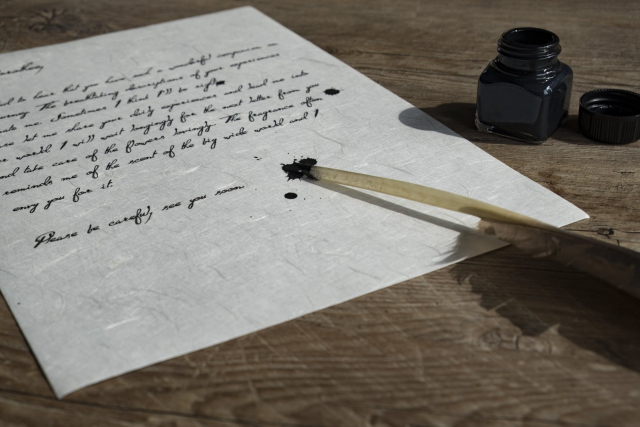 to hear that you have had a wonderful companion on
The breathtaking descriptions of your experiences
me. Sometimes I think I'll be right
but me share your daily experiences and lead me into
world! I will wait longingly for the next letter from you
and take care of the flowers lovingly. The fragrance often
reminds me of the scent of the big wide world and I
envy you for it.
Please be careful, see you soon